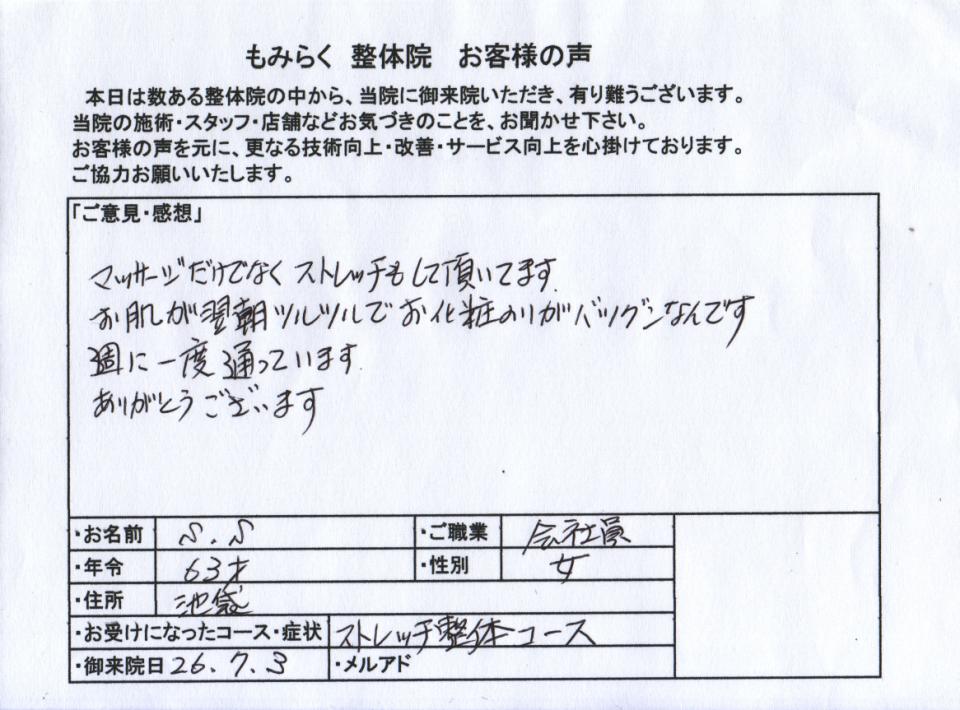 もみらく 整体院 お客様の声
本日は数ある整体院の中から、当院に御来院いただき、有り難うございます。
当院の施術・スタッフ・店舗などお気づきのことを、お聞かせ下さい。
お客様の声を元に、更なる技術向上・改善・サービス向上を心掛けております。
ご協力お願いいたします。
「ご意見・感想」
マッサージだけでなくストレッチもして頂いてます
お肌が翌朝ツルツルでお化粧のりがバツグンなんです
週に一度通っています
ありがとうございます
・お名前 S.S ・ご職業 会社員
・年令 63才 ・性別 女
・住所 池袋
・お受けになったコース・症状 ストレッチ整体コース
・御来院日 26.7.3 ・メルアド